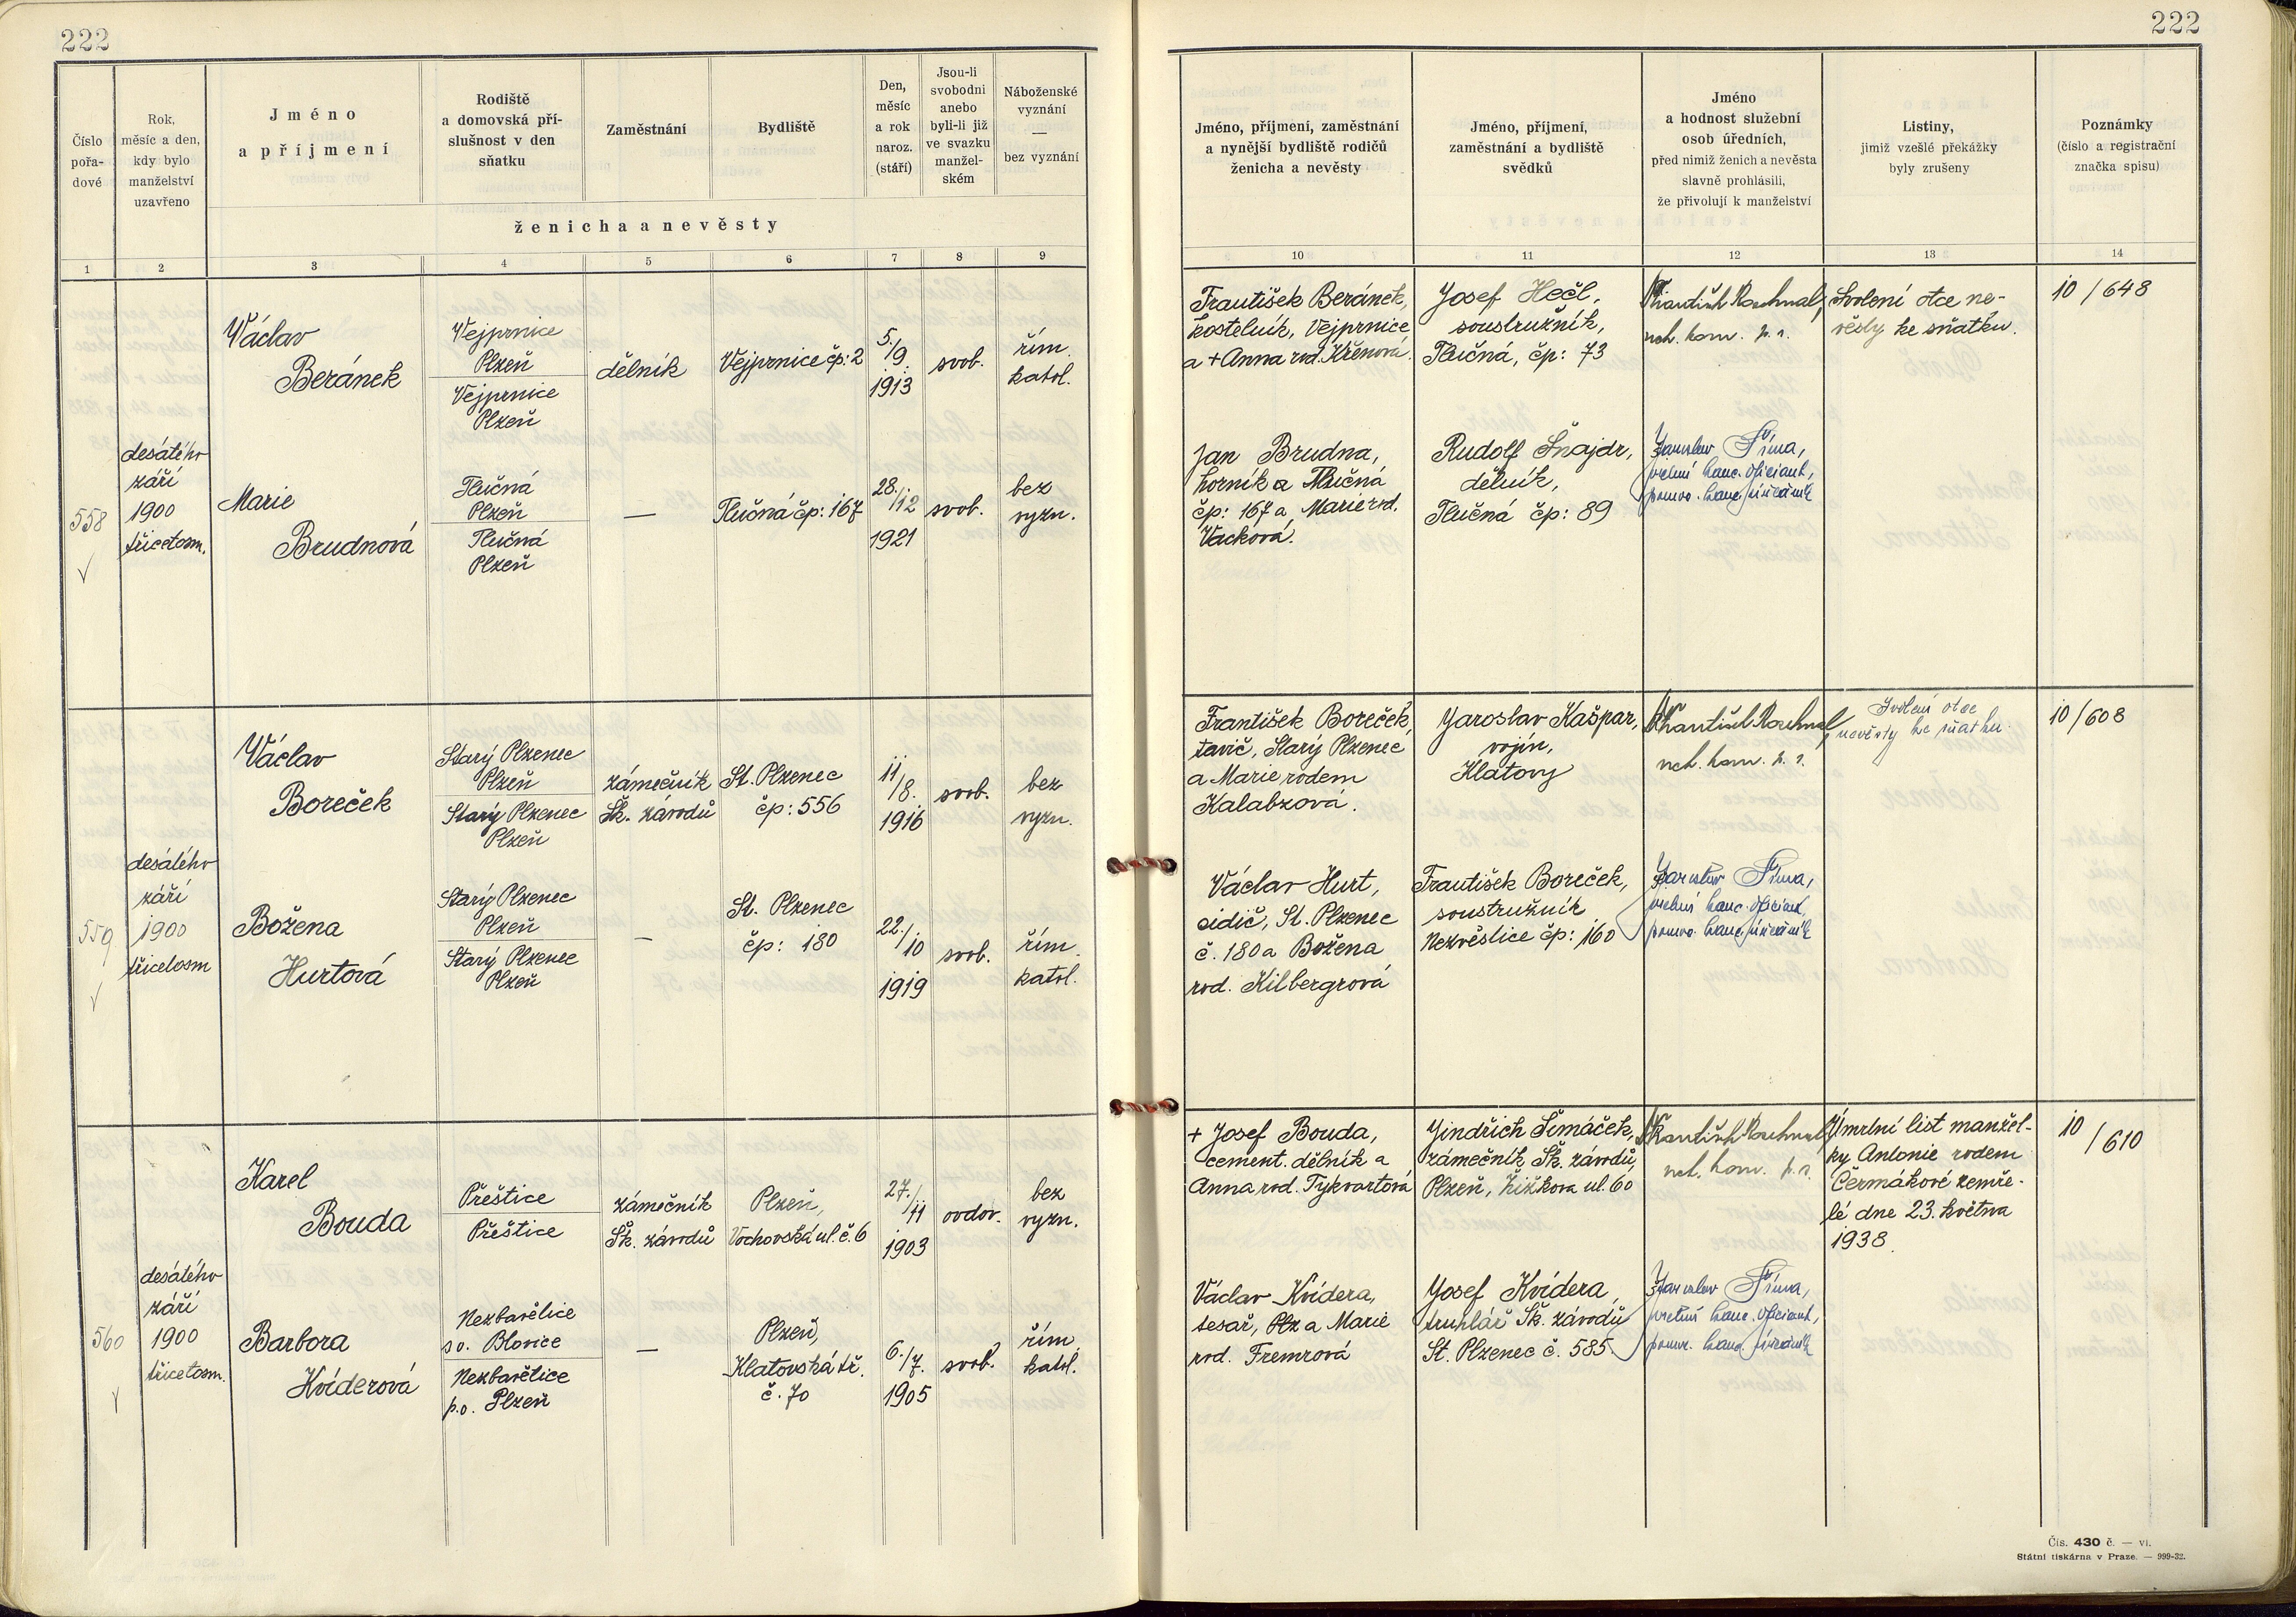 222
222
Číslo
pořa-
dové
Rok,
měsíc a den,
kdy bylo
manželství
uzavřeno
Jméno
a příjmení
Rodiště
a domovská pří-
slušnost v den
sňatku
Zaměstnání
Bydliště
Den,
měsíc
a rok
naroz.
(stáří)
Jsou-li
svobodni
anebo
byli-li již
ve svazku
manžel-
ském
Náboženské
vyznání
—
bez vyznání
ženicha a nevěsty
Jméno, příjmení, zaměstnání
a nynější bydliště rodičů
ženicha a nevěsty
Jméno, příjmení,
zaměstnání a bydliště
svědků
Jméno
a hodnost služební
osob úředních,
před nimiž ženich a nevěsta
slavně prohlásili,
že přivolují k manželství
Listiny,
jimiž vzešlé překážky
byly zrušeny
Poznámky
(číslo a registrační
značka spisu)
1 2 3 4 5 6 7 8 9 10 11 12 13 14
558
desátého
září
1900
třicetosm.
Václav
Beránek
Vejprnice
Plzeň
Vejprnice
Plzeň
dělník
Vejprnice čp: 2
5./9.
1913
svob.
řím.
katol.
František Beránek,
kostelník, Vejprnice
a + Anna rod. Křenová.
Josef Hečl,
soustružník,
Tlučná, čp: 73
František
rch. kom. p. r.
Svolení otce ne-
věsty ke sňatku.
10/648
Marie
Brudnová
Tlučná
Plzeň
Tlučná
Plzeň
—
Tlučná čp: 167
28./12
1921
svob.
bez
vyzn.
Jan Brudna,
horník a Tlučná
čp: 167 a Marie rod.
Vacková.
Rudolf Šnajdr,
dělník,
Tlučná čp: 89
Jaroslav Šíma,
kanc. oficiant,
559
desátého
září
1900
třicetosm
Václav
Boreček
Starý Plzenec
Plzeň
Starý Plzenec
Plzeň
zámečník
Šk. závodů
St. Plzenec
čp: 556
11/8.
1916
svob.
bez
vyzn.
František Boreček,
tavič, Starý Plzenec
a Marie rodem
Kalabzová.
Jaroslav Kašpar,
vojín,
Klatovy
František
rch. kom. p. r.
Svolení otce
nevěsty ke sňatku.
10/608
Božena
Hurtová
Starý Plzenec
Plzeň
Starý Plzenec
Plzeň
—
St. Plzenec
čp: 180
22./10
1919
svob.
řím.
katol.
Václav Hurt,
sidič, St. Plzenec
č. 180 a Božena
rod. Kilbergrová
František Boreček,
soustružník
Nezvěstice čp: 160
Jaroslav Šíma,
kanc. oficiant,
560
desátého
září
1900
třicetosm.
Karel
Bouda
Přeštice
Přeštice
zámečník
Šk. závodů
Plzeň,
Vochovská ul. č. 6
27./11
1903
ovdov.
bez
vyzn.
+ Josef Bouda,
cement. dělník a
Anna rod. Tykvartová
Jindřich Šimáček,
zámečník Šk. závodů,
Plzeň, Žižkova ul. 60
František
rch. kom. p. r.
Úmrtní list manžel-
ky Antonie rodem
Čermákové zemře-
lé dne 23. května
1938.
10/610
Barbora
Kvíderová
Nezbavětice
s o. Blovice
Nezbavětice
p.o. Plzeň
—
Plzeň,
Klatovská tř.
č. 70
6./7.
1905
svob.
řím.
katol.
Václav Kvídera,
tesař, Plz a Marie
rod. Fremrová
Josef Kvídera,
truhlář Šk. závodů
St. Plzenec č. 585
Jaroslav Šíma,
kanc. oficiant,
Čís. 430 č. — VI.
Státní tiskárna v Praze. — 999-32.